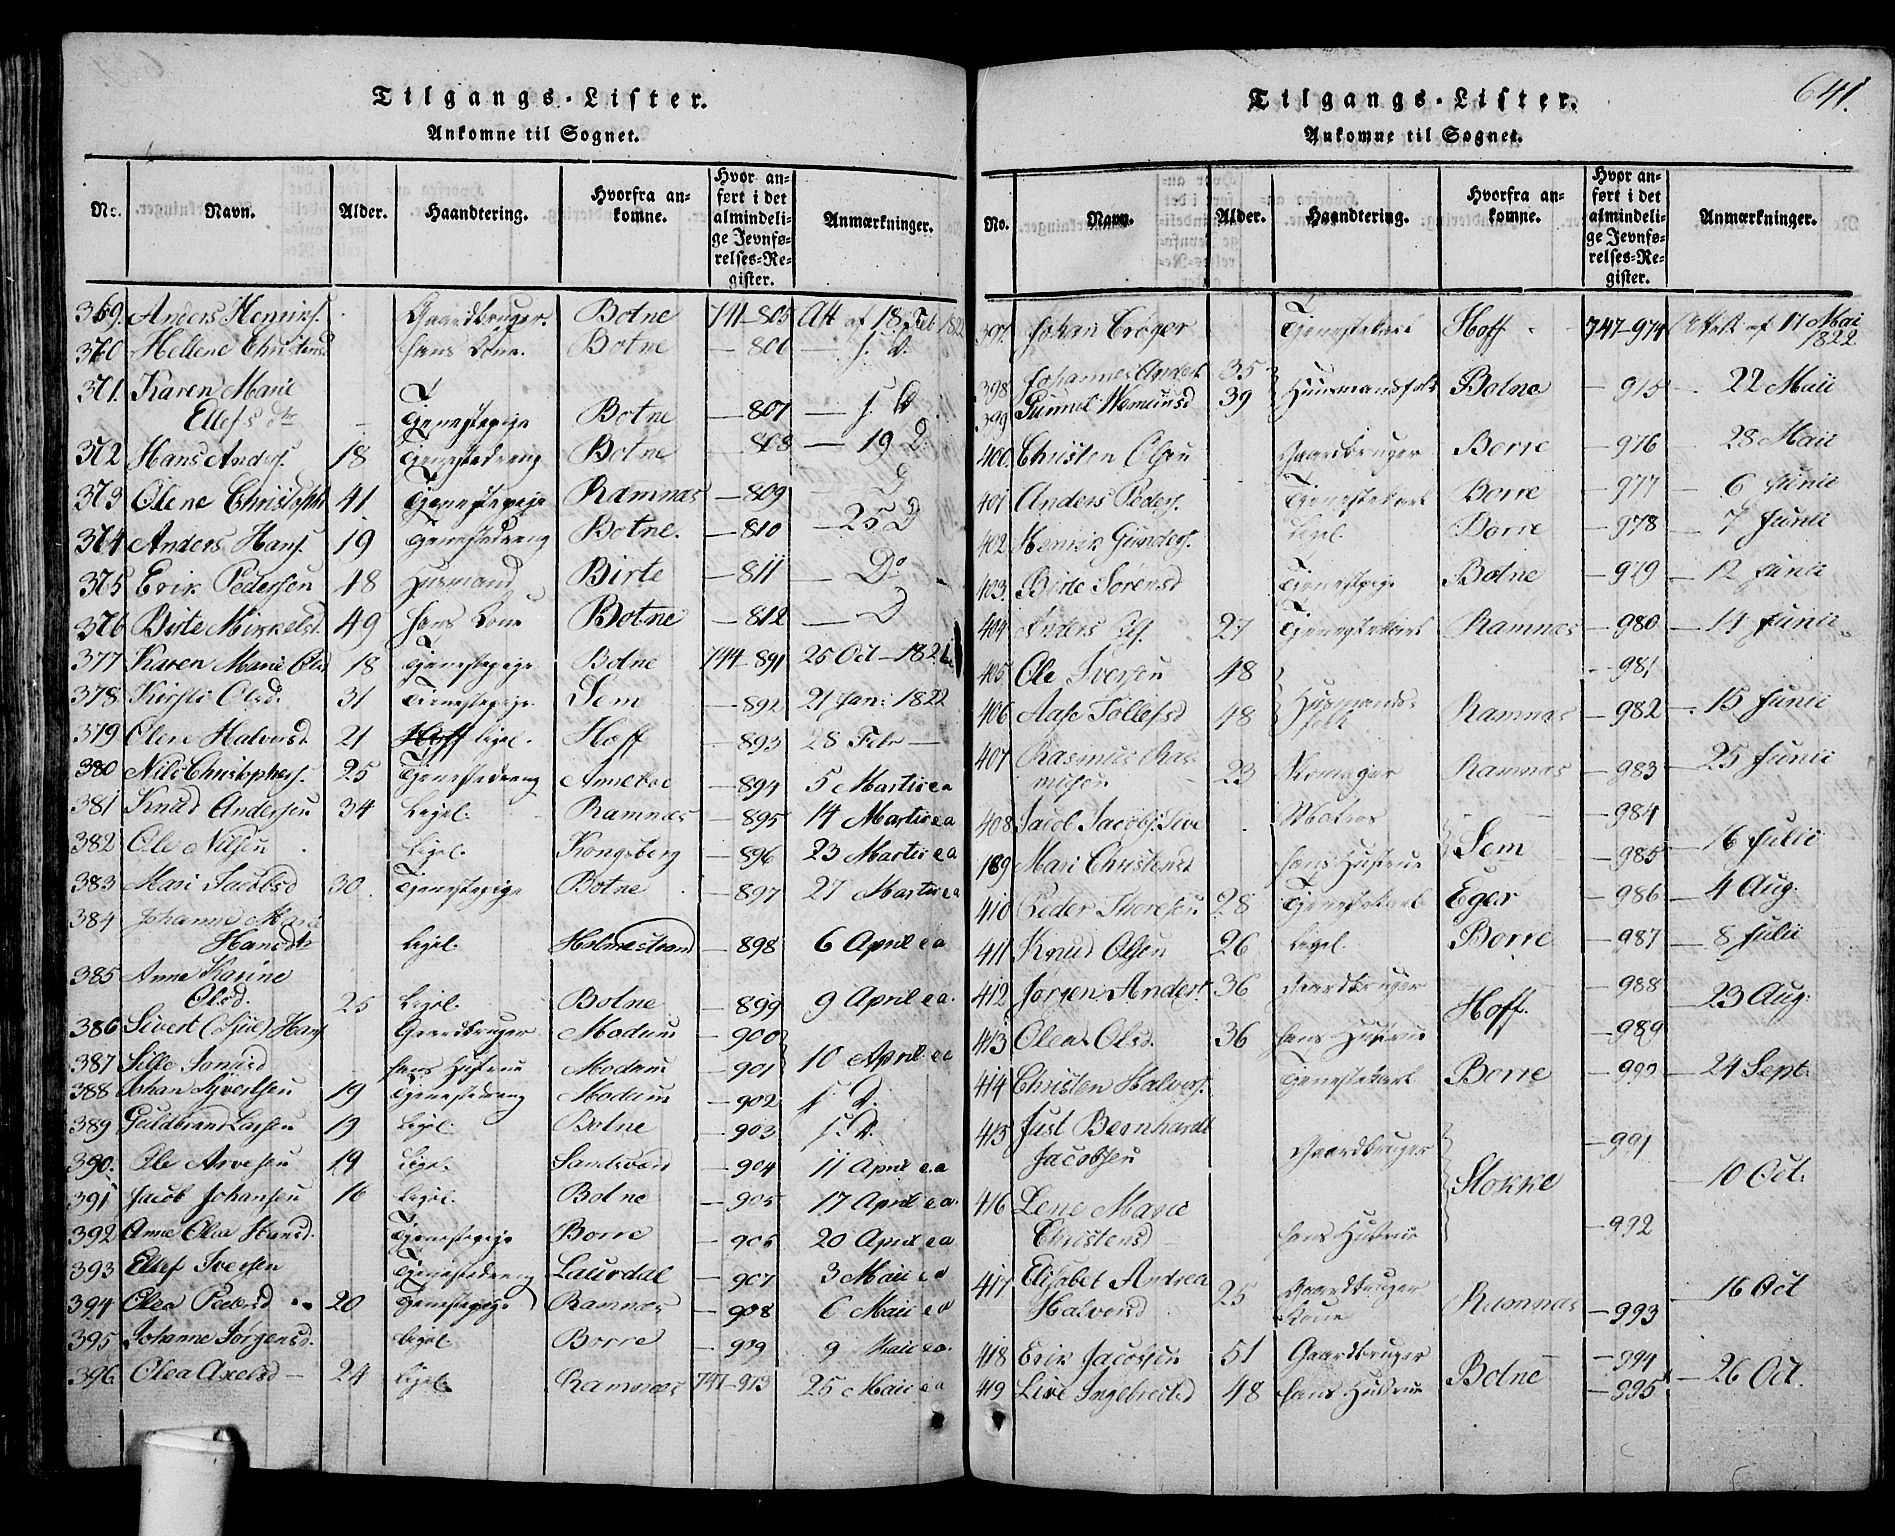 Tilgangs-Lister.
Ankomne til Sognet.
No. Navn. Alder. Haandtering. Hvorfra ankomne. Hvor anført i det almindelige Jevnførelses-Register. Anmærkninger.
369. Anders Henriks. Gaardbruger. Botne 741-805 Att af 18 Feb 1822
360 Hellene Christensd hans Kone. Botne - 806 - s. D.
371. Karen Marie
Ellefs dtr - Tjenestepige Botne - 807 - s. D
372 Hans Anders. 18 Tjenestedreng Botne - 808 - 19 D.
373 Olene Christophs 41. Tjenestepige Ramnæs - 809 - D
374 Anders Hans. 19 Tjenestedreng Botne. - 810 - 25 D
375 Erik Pedersen 48 Husmand Birte - 811 - Do
376 Birte Mikkelsd. 49 hans Kone Botne - 812 - D
377 Karen Marie Olsd 18 Tjenestepige Botne 744-891 25 Oct - 1821
378 Kirsti Olsd. 31 Tienestepige Sem - 892 21 Jan: 1822
379 Olen Halvorsd. 21 Ligel. Hoff - 893 28 Febr -
380 Nils Christophers. 25 Tjenestedreng Anneboe - 894 5 Martii ea
381 Knud Andersen 34 Ligel. Ramnæs - 895 14 Martii ea
382 Ole Nilsen . Ligel. Kongsberg - 896 23 Martii ea
383 Mari Jacobsd 30. Tjenestepige Botne - 897 27 Martii ea
384 Johanne Marie
Hansdtr Ligel. Holmestrand - 898 6 April ea
385 Anne Karine
Olsd. 25 Ligel. Botne - 899 9 April ea.
386 Sivert (Sjul) Hans Gaardbruger Modum - 900
387 Sille hans Hustrue Modum - 901 10 April ea
388 Johan Syvertsen 19 Tjenestedreng Modum - 902 s. D.
389 Guldbrand Larsen 19 Ligel. Botne - 903 s. D.
390. Ole Arvesen 19 Ligel. - 904 11 April e.a
391 Jacob Johansen 16 Ligel. Botne - 905 17 April ea.
392 Anne Olea Hansd. Tjenestepige Borre - 906 20 April ea
393 Ellef Iversen Tjenestedreng Laurdal - 907 3 Maii ea
394 Olea Pedersd 20 Tjenestepige Ramnæs - 908 6 Maii ea
395 Johanne Jørgensd. Ligel. Borre - 909 9 Maii ea.
396 Olea Axelsd - 24 Ligel. Ramnæs 747-973 25 Maii ea
641.
Tilgangs-Lister.
Ankomne til Sognet.
No. Navn. Alder. Haandtering. Hvorfra ankomne. Hvor anført i det almindelige Jevnførelses-Register. Anmærkninger.
397. Johan Crøger Tjenestekarl Hoff - 747-974 Attest af 17 Mai 1822
398 Johannes Anders. 35
399 Gunnel 39 Huusmandsfolk Botne - 975 - 22 Maii
400. Christen Olsen Gaardbruger Borre - 976 28 Maii
401 Anders Peders. Tjenestekarl Borre - 977 - 6 Junii
402. Henrik Gunders. Ligel. Borre - 978 - 7 Junii
403. Birte Sørensd Tjenestepige Botne - 979 - 12 Junii
404 Anders 27 Tjenestekarl Ramnæs - 980 - 14 Junii
405 Ole Iversen 48 - 981
406 Aase Tollefsd 48 Husmandsfolk Ramnæs - 982 - 15 Junii
407 Rasmus Ras-
musen 23 Ramnæs - 983 - 25 Junii
408 Jacob Jacobs. . Matros - 984
189 Mari Christensd hans Hustrue Sem - 985 - 16 Julii
410 Peder Thoresen 28 Tjenestekarl Eger - 986 - 4 Aug:
411 Knud Olsen 26 Ligel. Borre - 987 - 8 Julii
412 Jørgen Anders. 36 Gaardbruger - 988
413 Olea Olsd. 36 hans Hustrue Hoff. - 989 - 23 Aug:
414 Christen Halvors. Tjenestekarl Borre - 990 - 24 Sept.
415 Just Bernhardt
Jacobsen Gaardbruger - 991
Stokke - 10 Oct.
416 Lene Marie
Christensd - hans Hustrue - 992
417 Elisabet Andrea
Halvorsd 25 Gaardbruger Kone Ramnæs - 993 - 16 Oct
418 Erik Jacobsen 51 Gaardbruger - 994
419 Live Ingebretsd 48 hans Hustrue Botne - 995 - 26 Oct.